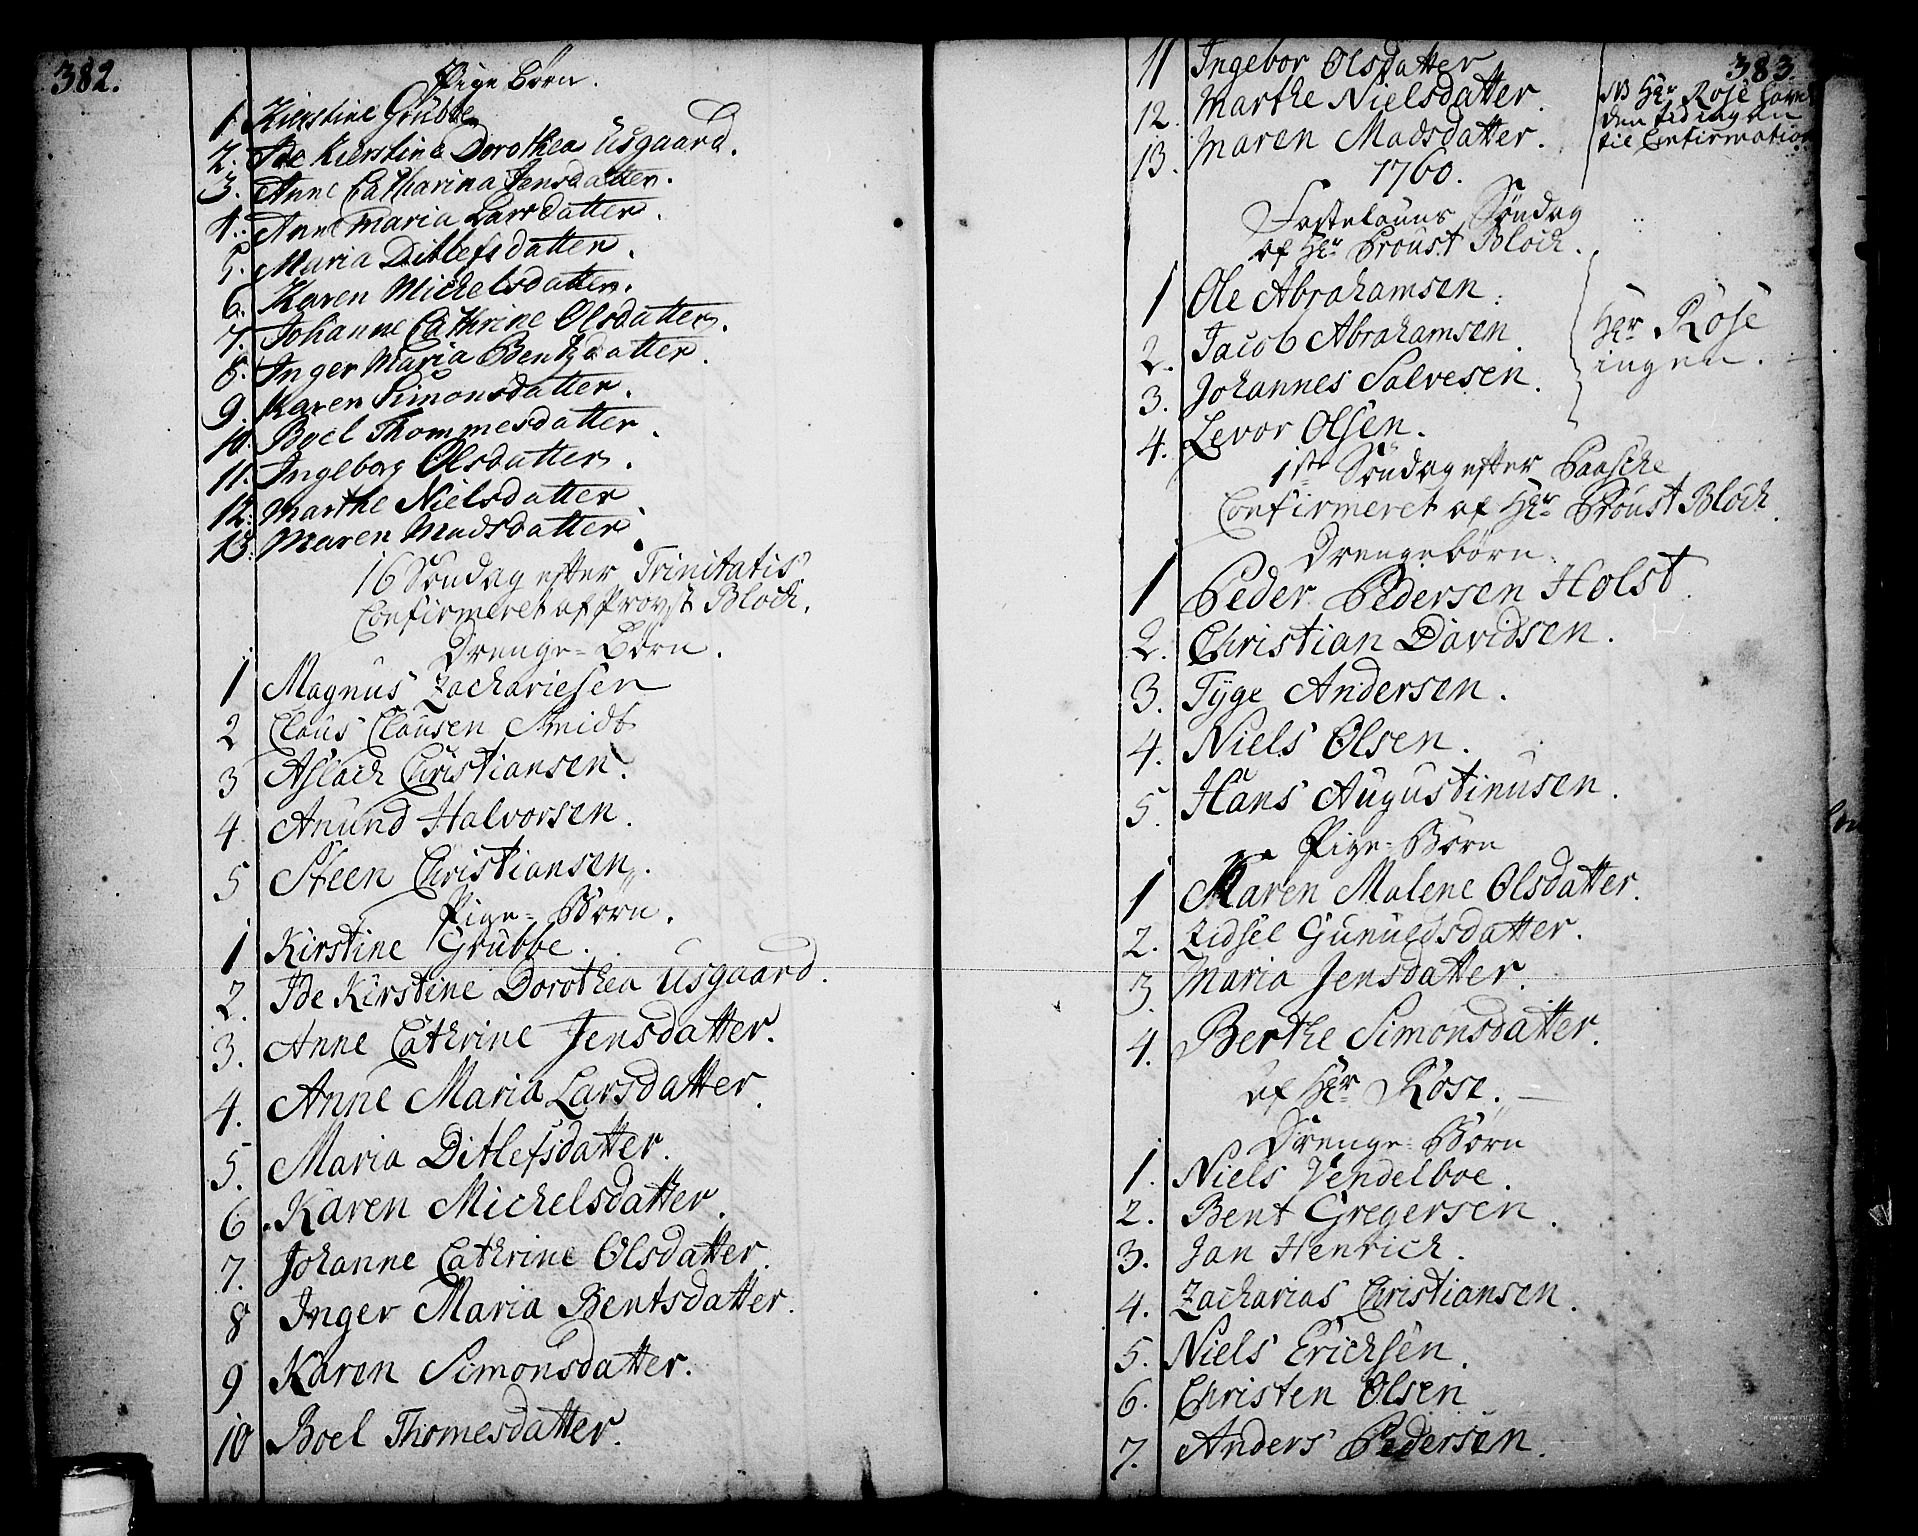 382.
Pige Børn.
1. Kirstine Grubbe
2. Ide Kierstine Dorothea Usgaard.
3. Anne Catharina Jensdatter.
4. Anne Maria Larsdatter.
5. Maria Ditlefsdatter.
6. Karen Michelsdatter.
7. Johanne Cathrine Olsdatter.
8. Inger Maria Bentzdatter.
9. Karen Simonsdatter.
10. Boel Thommesdatter.
11. Ingeborg Olsdatter.
12. Marthe Nielsdatter.
13. Maren Madsdatter.
16 Søndag efter Trinitatis
Confirmeret af Provst Bloch.
Drenge=Børn.
1 Magnus Zachariesen
2 Claus Clausen Smidt
3 Aslach Christiansen.
4. Anund Halvorsen.
5 Steen Christiansen.
Pige=Børn.
1 Kirstine Grubbe.
2. Ide Kirstine Dorothea Usgaard.
3. Anne Cathrine Jensdatter.
4. Anne Maria Larsdatter.
5. Maria Ditlefsdatter.
6. Karen Michelsdatter.
7. Johanne Cathrine Olsdatter.
8 Inger Maria Bentsdatter.
9 Karen Simonsdatter.
10 Boel Thomesdatter.
383.
11 Ingebor Olsdatter
12. Marthe Nielsdatter.
13. Maren Madsdatter.
NB Hr Rose havde
den tid ingen
til Confirmation
1760.
Fastelauns Søndag
af Hr Proust Bloch.
1 Ole Abrahamsen.
2. Jacob Abrahamsen.
3. Johannes Salvesen.
4. Levor Olsen.
Hr Rose
ingen.
1ste Søndag efter Paasche
Confirmeret af Hr Proust Bloch.
Drengebørn.
1 Peder Pedersen Holst.
2. Christian Davidsen.
3. Tyge Andersen.
4. Niels Olsen.
5. Hans Augustinusen.
Pige=Børn
1 Maren Malene Olsdatter.
2. Zidsel Gunuldsdatter.
3. Maria Jensdatter.
4. Berthe Simonsdatter.
af Hr Rose.
Drenge=Børn
1. Niels Vendelboe.
2. Bent Gregersen.
3. Jan Henrich.
4. Zacharias Christiansen.
5. Niels Ericksen.
6. Christen Olsen
7. Anders Pedersen.